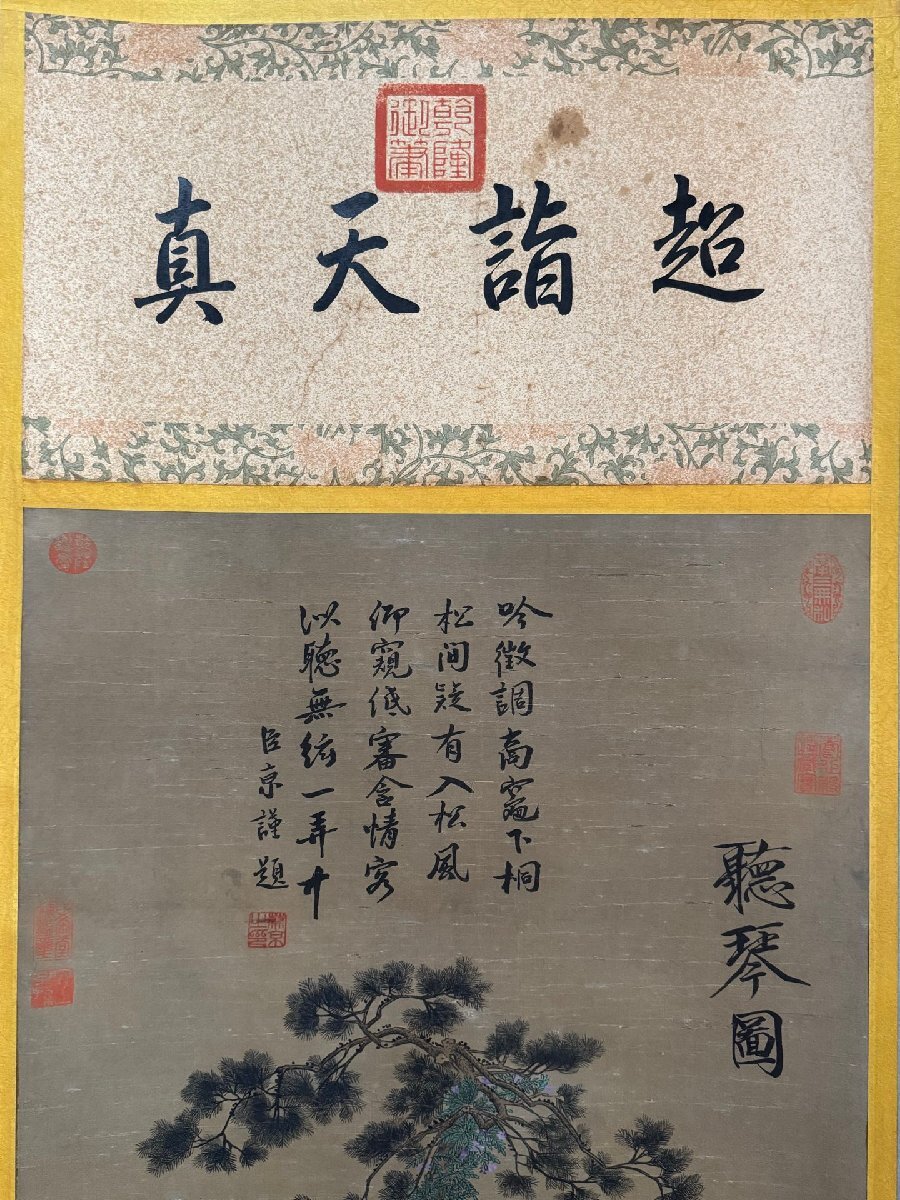 超詣天真
乾隆御筆
聽琴圖
吟徵調商竈下桐
松間疑有入松風
仰窺低審含情客
以聽無絃一弄中
臣京謹題